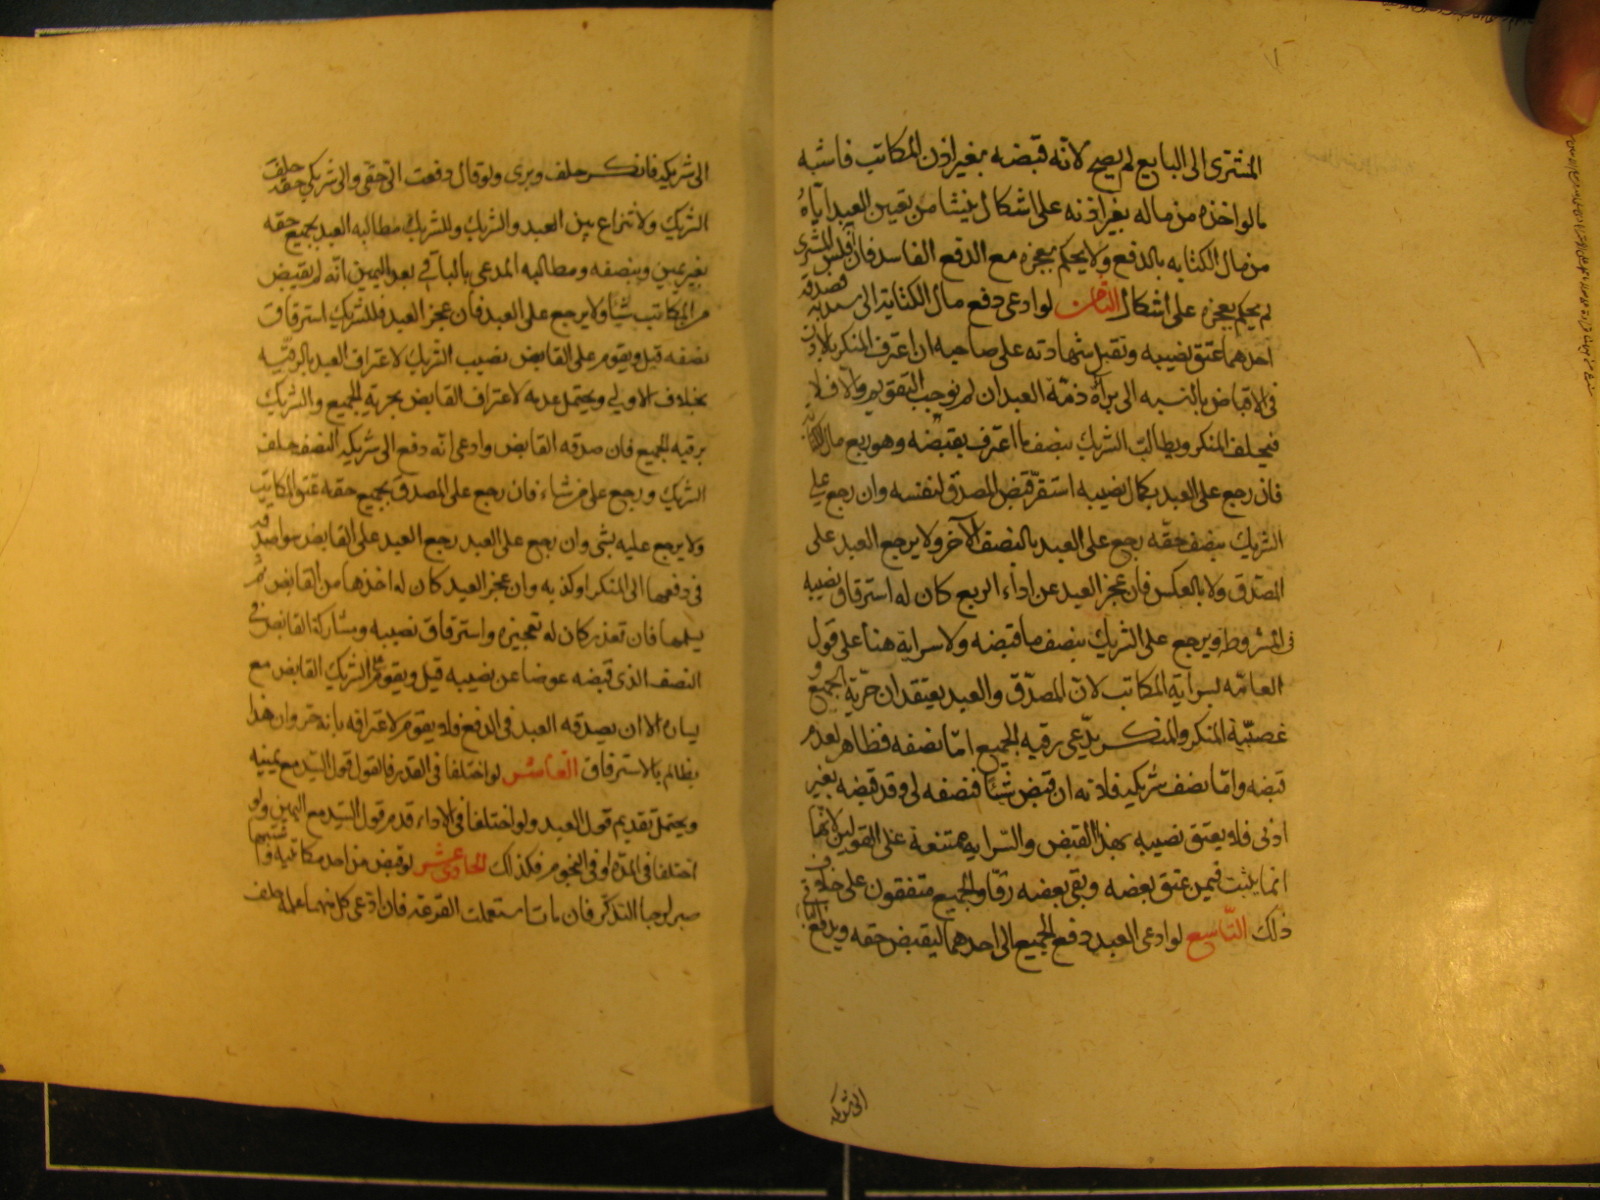 المشتری الی البایع لم یصح لانه قبضه بغیر اذن المکاتب فاشبه
ما لو اخذه من ماله بغیر اذنه علی اشکال ینشا من تعیین العبد ایاه
من مال الکتابه بالدفع ولا یحکم بعجزه مع الدفع الفاسد فان افلس المشتری
لم یحکم بعجزه علی اشکال الثامن لو ادعی دفع مال الکتابة الی سیدیه فصدقه
احدهما عتق نصیبه وتقبل شهادته علی صاحبه ان اعترف المنکر بالاذن
فی الاقباض بالنسبه الی براءة ذمة العبد ان لم نوجب التقویم والا فلا
فیحلف المنکر ویطالب الشریک بنصف ما اعترف بقبضه وهو ربع مال الکتابة
فان رجع علی العبد بکمال نصیبه استقر قبض المصدق لنفسه وان رجع علی
الشریک بنصف حقه رجع علی العبد بالنصف الآخر ولا یرجع العبد علی
المصدق ولا بالعکس فان عجز العبد عن اداء الربع کان له استرقاق نصیبه
فی المشروطه ویرجع علی الشریک بنصف ما قبضه ولا سرایة هنا علی قول
العامه بسرایة المکاتب لان المصدق والعبد یعتقدان حریة الجمیع و
غصبیة المنکر والمنکر یدعی رقیه الجمیع اما نصفه فظاهر لعدم
قبضه واما نصف شریکه فلانه ان قبض شیئا فنصفه لی وقد قبضه بغیر
اذنی فلا یعتق نصیبه بهذا القبض والسرایه ممتنعة علی القولین لانها
انما یثبت فیمن عتق بعضه وبقی بعضه رقا والجمیع متفقون علی خلاف
ذلک التاسع لو ادعی العبد دفع الجمیع الی احدهما لیقبض حقه ویدفع الباقی
الی شریکه
الی شریکه فانکر حلف وبری ولو قال دفعت الی حقی والی شریکی حقه حلف
الشریک ولا نزاع بین العبد والشریک وللشریک مطالبه العبد بجمیع حقه
بغیر یمین وبنصفه ومطالبه المدعی بالباقی بعد الیمین انه لم یقبض
من المکاتب شیئا ولا یرجع علی العبد فان عجز العبد فللشریک استرقاق
نصفه قیل ویقوم علی القابض نصیب الشریک لاعتراف العبد بالرقیه
بخلاف الاولی ویحتمل عدمه لاعتراف القابض بحریة الجمیع والشریک
برقیه الجمیع فان صدقه القابض وادعی انه دفع الی شریکه النصف حلف
الشریک ورجع علی من شاء فان رجع علی المصدق بجمیع حقه عتق المکاتب
ولا یرجع علیه بشی وان رجع علی العبد رجع العبد علی القابض سواء صدقه
فی دفعها الی المنکر او کذبه وان عجز العبد کان له اخذها من القابض ثم
یسلمها فان تعذر کان له تعجیزه واسترقاق نصیبه ومشارکة القابض فی
النصف الذی قبضه عوضا عن نصیبه قیل ویقوم علی الشریک القابض مع
یساره الا ان یصدقه العبد فی الدفع فلا یقوم لاعترافه بانه حر وان هذا
یظلم بالاسترقاق العاشر لو اختلفا فی القدر فالقول قول السید مع یمینه
ویحتمل تقدیم قول العبد ولو اختلفا فی الاداء قدم قول السید مع الیمین ولو
اختلفا فی المدة او فی النجوم فکذلک الحادی عشر لو قبض من احد مکاتبیه واشتبها
صبر لرجاء التذکر فان مات استعملت القرعه فان ادعی کل منهما علمه حلف